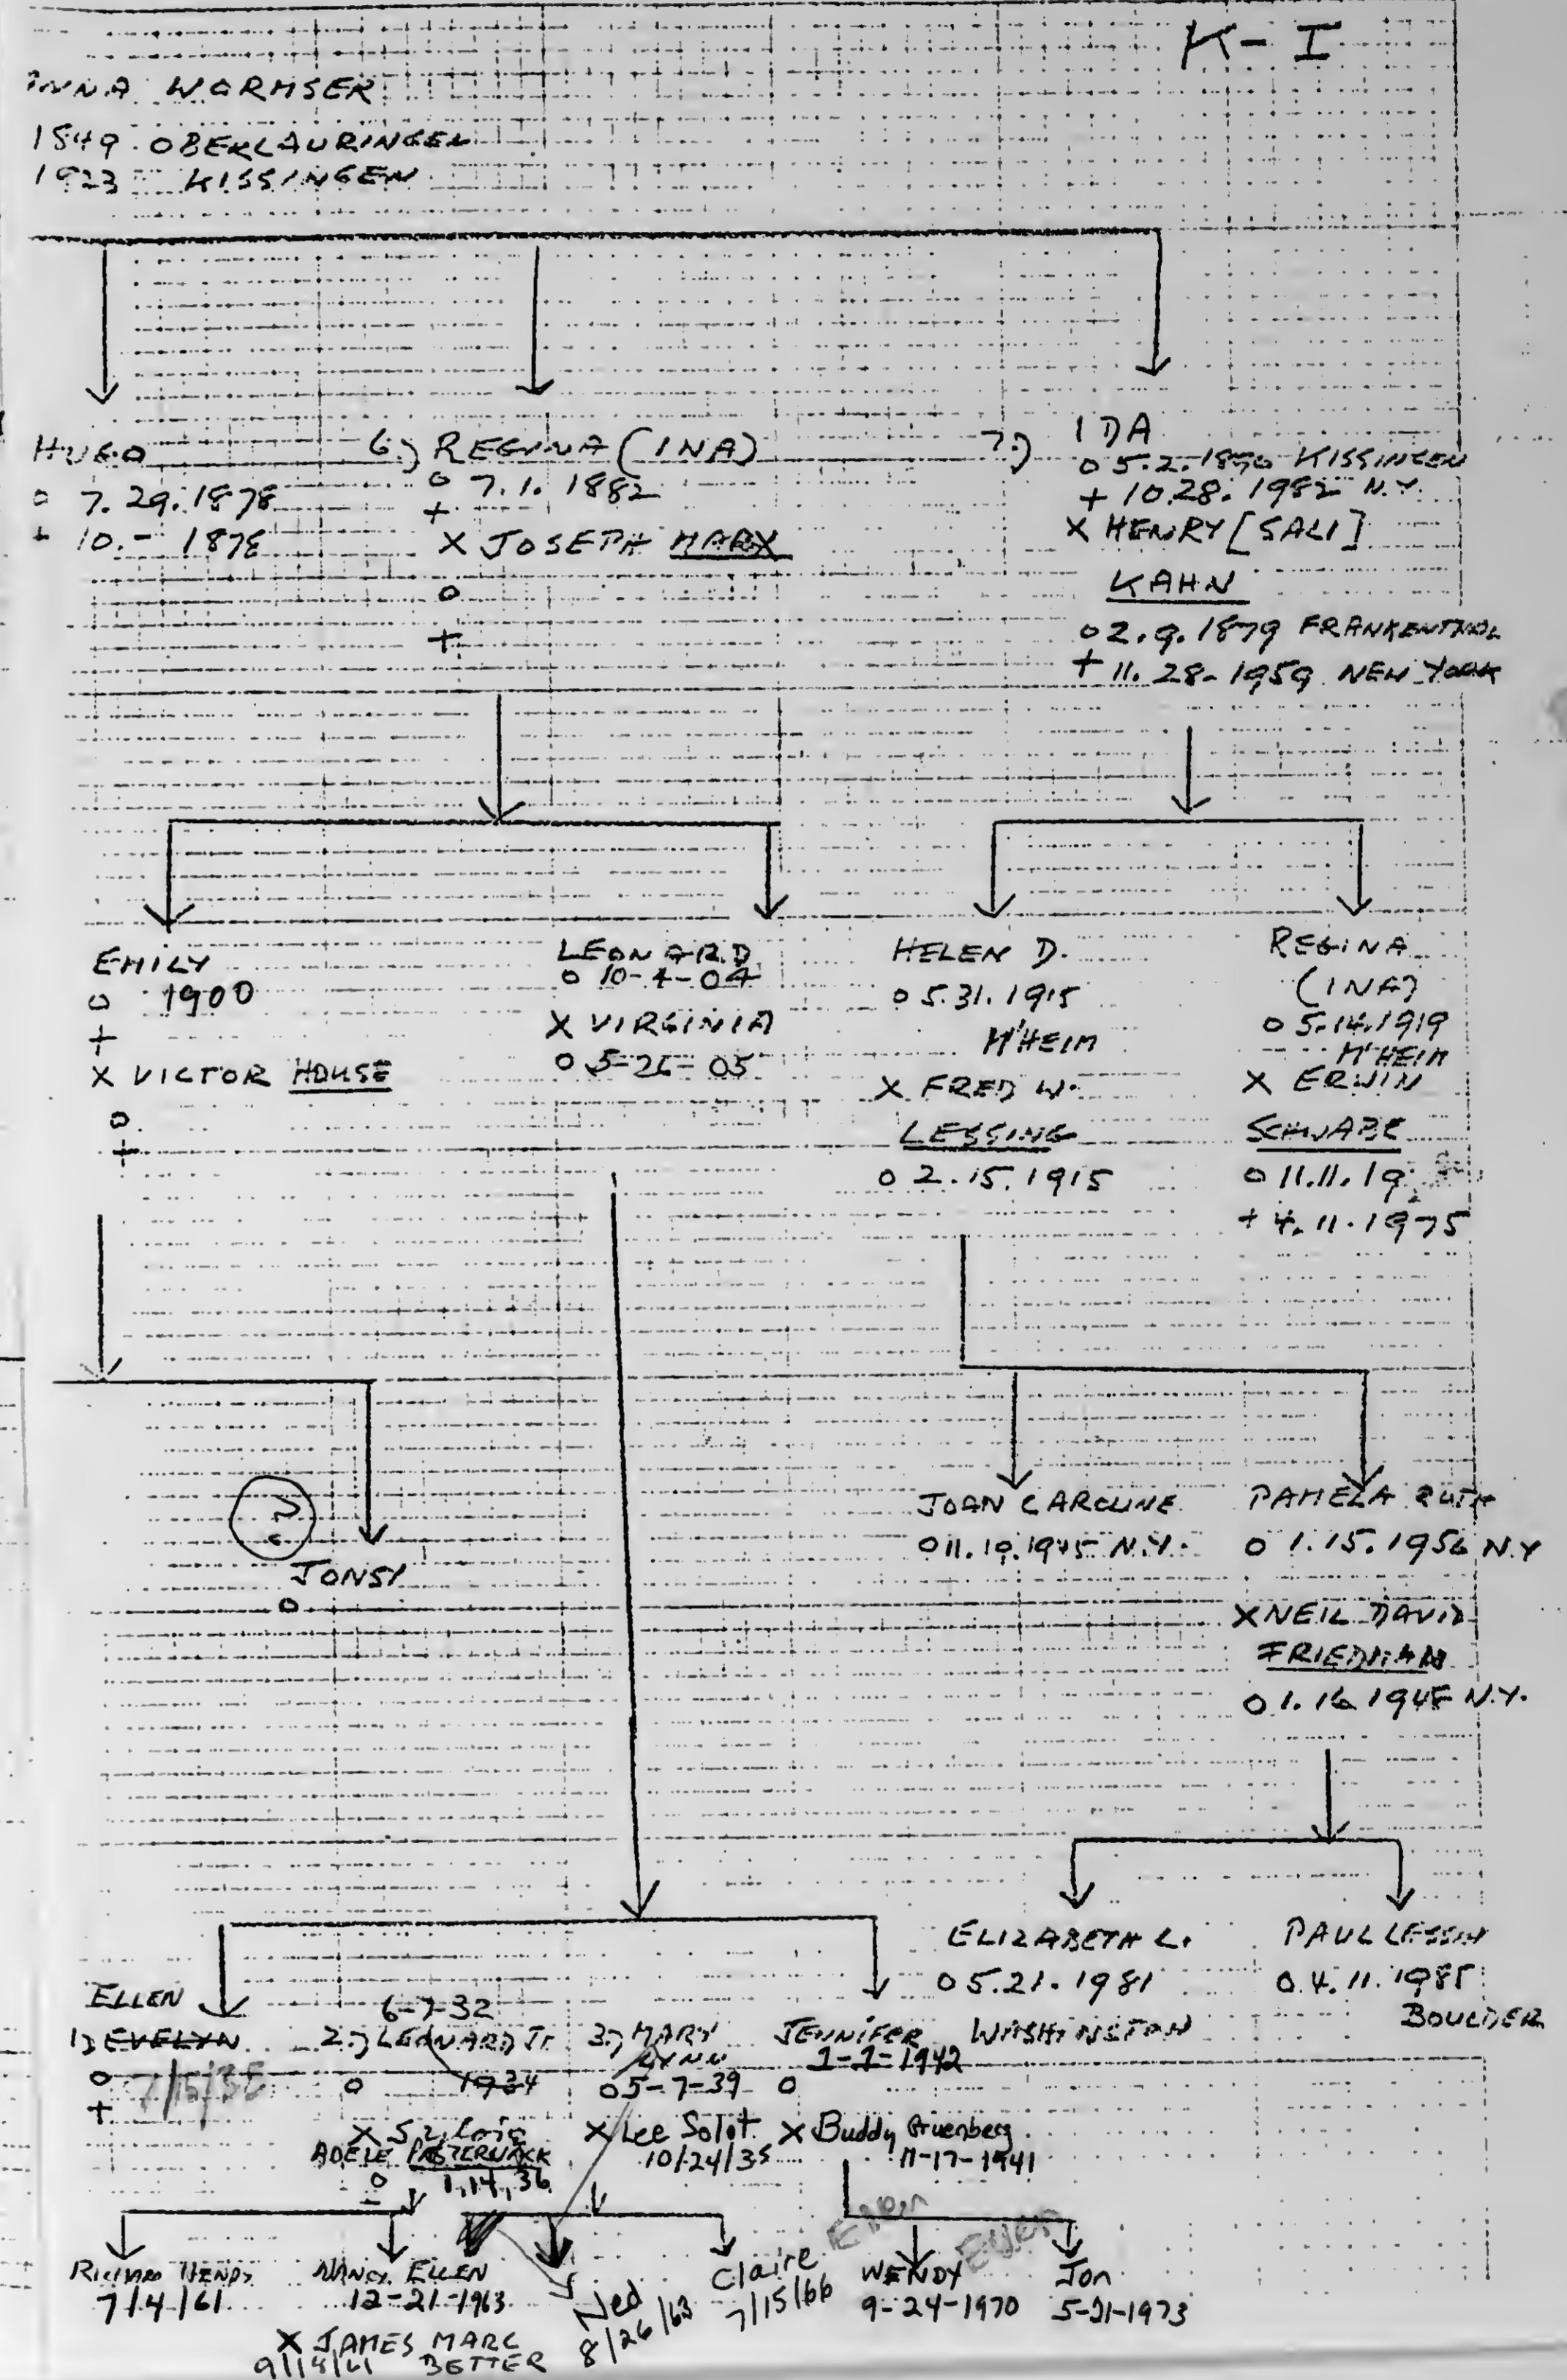 K-I
WORMSER
1849 OBERLAURINGEN
1923 KISSINGEN
HUGO
o 7. 29. 1878
+ 10. - 1878
6.) REGINA (INA)
o 7.1. 1882
+
X JOSEPH MARX
o
+
7.) IDA
o 5.2. KISSINGEN
+ 10.28. 1982 N.Y.
X HENRY [SALI]
KAHN
o 2.9.1879 FRANKENTHAL
+ 11. 28- 1959 NEW YORK
EMILY
o 1900
+
X VICTOR HOUSE
o
+
LEONARD
o 10-4-04
X VIRGINIA
o 5-26-05
HELEN D.
o 5.31.1915
M'HEIM
X FRED W.
LESSING
o 2.15.1915
REGINA
(INA)
o 5.14.1919
M'HEIM
X ERWIN
SCHWABE
o 11.11.19
+ 4.11.1975
?
JONSY
o
JOAN CAROLINE
o 11.19.1945 N.Y.
PAMELA RUTH
o 1.15.1956 N.Y
X NEIL DAVID
FRIEDMAN
o 1.16 1948 N.Y.
ELIZABETH L.
o 5.21.1981
WASHINGTON
PAUL
o 4.11.1985
BOULDER
ELLEN
1) EVELYN
o
+
6-7-32
2.) LEONARD Jr.
o 1934
X
ADELE PASTERNACK
o 1,14,36
3.) MARY
LYNN
o 5-7-39
X Lee Solot
10/24/35
JENNIFER
1-1-1942
o
X Buddy Gruenberg
11-17-1941
RICHARD HENRY
7/4/61
NANCY ELLEN
12-21-1963
X JAMES MARC
BETTER
Ned
8/26/63
Claire
7/15/66
Ellen
WENDY
9-24-1970
Ellen
Jon
5-21-1973